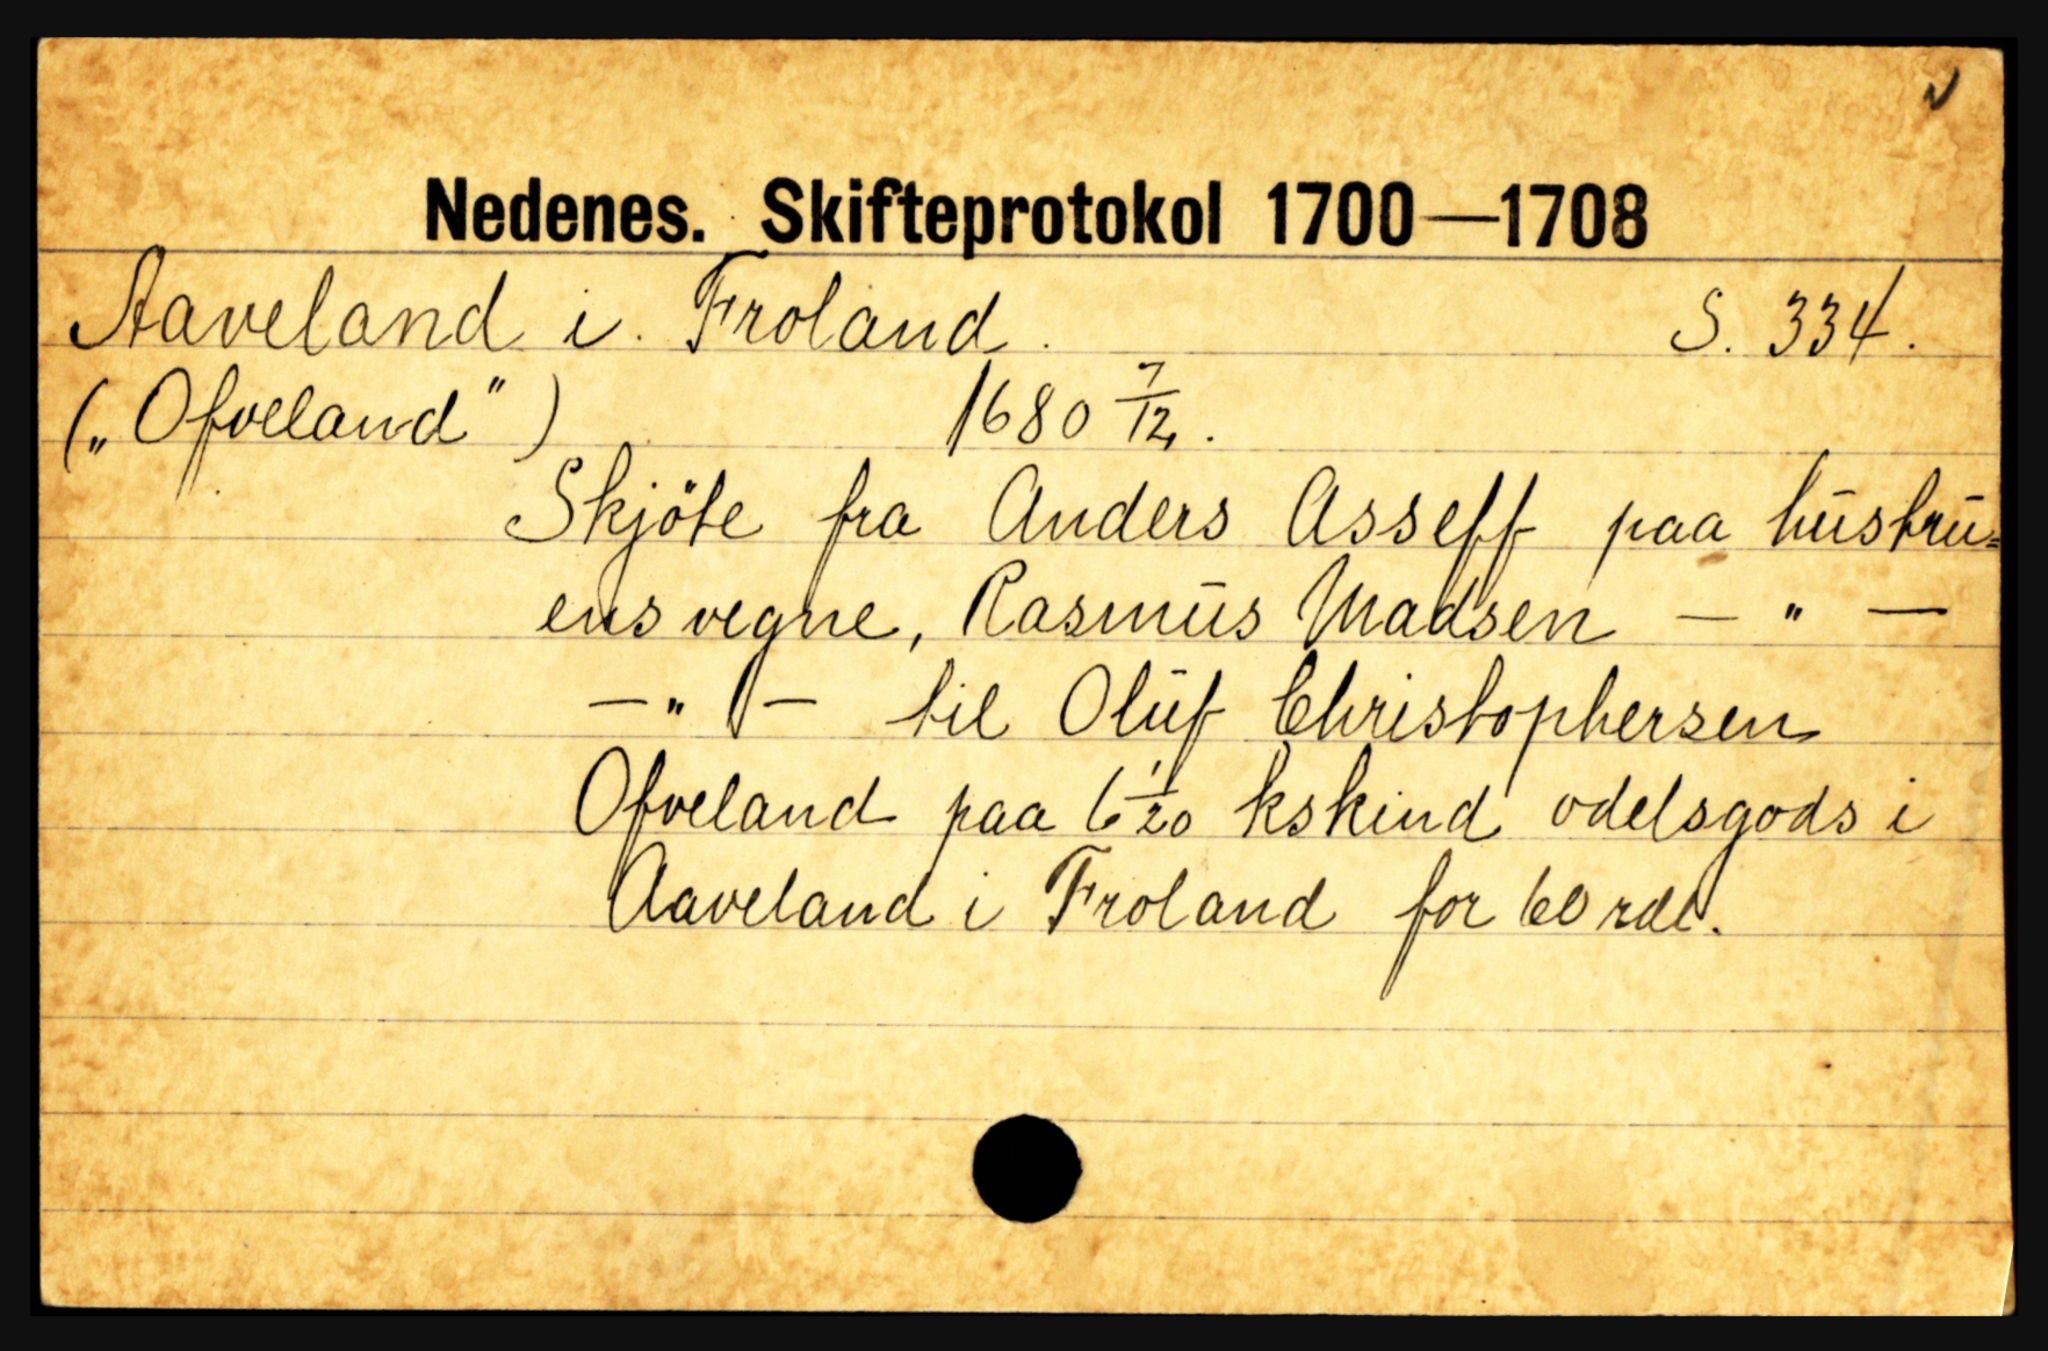 Nedenes. Skifteprotokol 1700—1708
Aaveland i Froland. S. 334.
(„Ofveland") 1680 7/12.
Skjöte fra Anders Asseff paa hustru=
ens vegne, Rasmus Madsen — " —
— " — til Oluf Christophersen
Ofveland paa 6 1/20 kskind odelsgods i
Aaveland i Froland for 60 rdl.